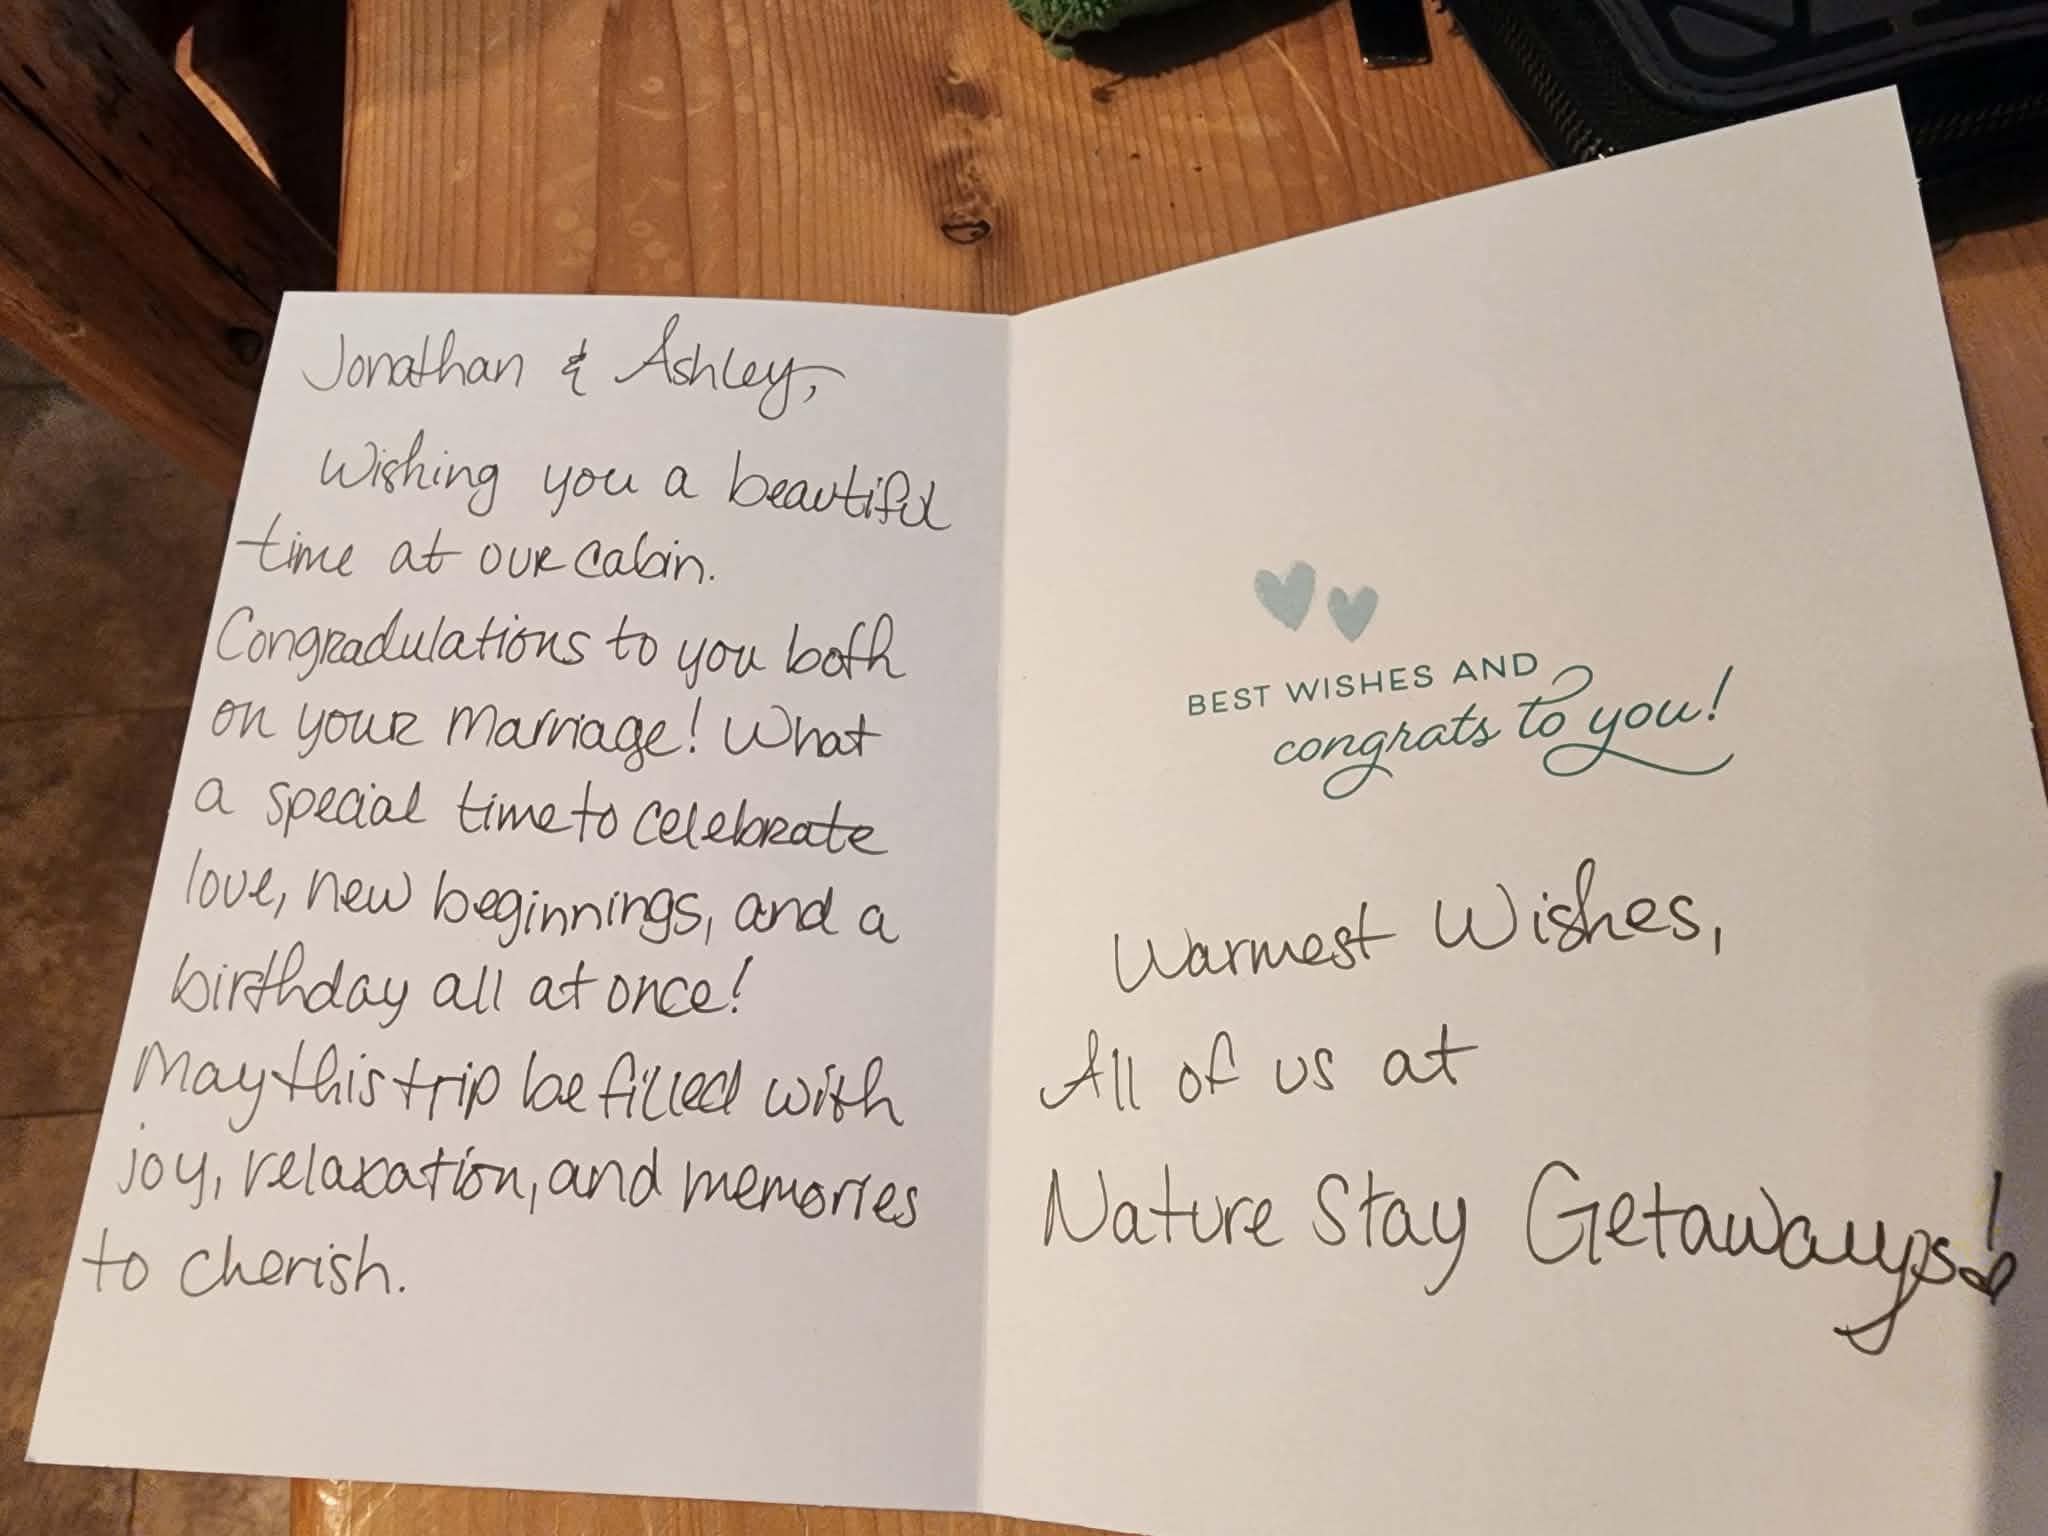 Jonathan & Ashley,
Wishing you a beautiful
time at our cabin.
Congradulations to you both
on your marriage! What
a special time to celebrate
love, new beginnings, and a
birthday all at once!
May this trip be filled with
joy, relaxation, and memories
to cherish.
BEST WISHES AND
congrats to you!
Warmest Wishes,
All of us at
Nature Stay Getaways!